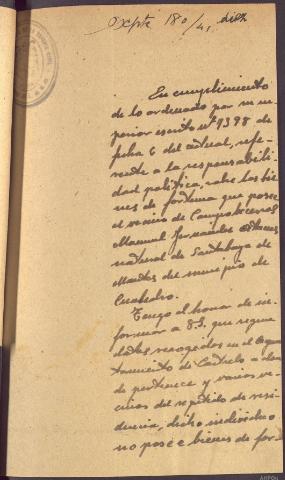 Expte 180/41
En cumplimiento
de lo ordenado por su su-
perior escrito nº 9398 de
fecha 6 del actual, refe-
rente a la responsabili-
dad política, sobre los bie-
nes de fortuna que posee
el vecino de
Manuel Fernandez
natural de de
del municipio de
Cualedro.
Tengo el honor de in-
formar a S.S. que segun
datos recogidos en el Ayun-
tamiento de Castrelo a don-
de pertenece y varios ve-
cinos del repetido de resi-
dencia, dicho individuo
no posee bienes de for-